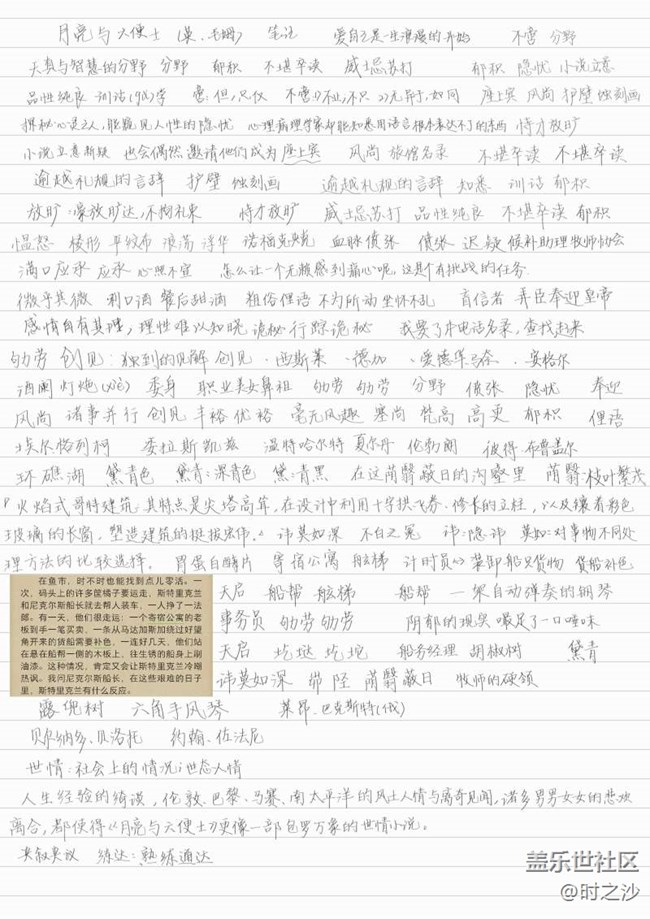 月亮与六便士（英、毛姆） 笔记 爱自己是一生浪漫的开始 不啻 分野
天真与智慧的分野 分野 郁积 不堪卒读 威士忌苏打 郁积 隐忧 小说立意
品性纯良 训诂(gǔ)学 啻：但，只仅 不啻：1）不止，不只 2）无异于，如同 座上宾 风尚 护壁 蚀刻画
探秘心灵之人，能窥见人性的隐忧 心理病理学家却能知悉用语言根本表达不了的东西 恃才放旷
小说立意新颖 也会偶然邀请他们成为座上宾 风尚 旅馆名录 不堪卒读 不堪卒读
逾越礼规的言辞 护壁 蚀刻画 逾越礼规的言辞 知悉 训诂 郁积
放旷：豪放旷达，不拘礼束 恃才放旷 威士忌苏打 品性纯良 不堪卒读 郁积
愠怒 棱形 平纹布 浪荡 浮华 诺福克 血脉偾张 偾张 迟疑 候补助理牧师协会
满口应承 应承 心照不宣 怎么让一个无赖感到痛心呢，这是个有挑战的任务
微乎其微 利口酒 餐后甜酒 粗俗俚语 不为所动 坐怀不乱 盲信者 弄臣奉迎皇帝
感情自有其理，理性难以知晓 诡秘 行踪诡秘 我要了本电话名录，查找起来
劬劳 创见：独到的见解 创见 ·西斯莱 ·德加 ·爱德华马奈 ·安格尔
酒阑灯灺（xiè） 委身 职业美女鼻祖 劬劳 劬劳 分野 偾张 隐忧 奉迎
风尚 诸事并行 创见 丰裕 优裕 毫无风趣 塞尚 梵高 高更 郁积 俚语
埃尔格列柯 委拉斯凯兹 温特哈尔特 夏尔丹 伦勃朗 彼得·布鲁盖尔
环礁湖 黛青色 黛青：深青色 黛：青黑 在这荫翳蔽日的沟壑里 荫翳：枝叶繁茂
「火焰式哥特建筑：其特点是尖塔高耸，在设计中利用十字拱飞券、修长的立柱，以及镶着彩色
玻璃的长窗，塑造建筑的挺拔宏伟。」 讳莫如深 不白之冤 讳：隐讳 莫如：对事物不同处
理方法的比较选择。 胃蛋白酶片 寄宿公寓 舷梯 计时员 装卸船只货物 货船补色
在鱼市，时不时也能找到点儿零活。一
次，码头上的许多筐橘子要运走，斯特里克兰
和尼克尔斯船长就去帮人装车，一人挣了一法
郎。有一天，他们很走运：一个寄宿公寓的老
板到手一笔买卖，一条从马达加斯加绕过好望
角开来的货船需要补色，一连好几天，他们站
在悬在船帮一侧的木板上，往生锈的船身上刷
油漆。这种情况，肯定又会让斯特里克兰冷嘲
热讽。我问尼克尔斯船长，在这些艰难的日子
里，斯特里克兰有什么反应。
天启 船帮 舷梯 船帮 一架自动弹奏的钢琴
事务员 劬劳 劬劳 阴郁的现实 嘬足了一口唾味
天启 圪垯 圪坨 船务经理 胡椒树 黛青
讳莫如深 荫翳蔽日 牧师的硬领
露兜树 六角手风琴 莱昂·巴克斯特（俄）
贝尔纳多·贝洛托 约翰·佐法尼
世情：社会上的情况；世态人情
人生经验的绮谈，伦敦、巴黎、马赛、南太平洋的风土人情与离奇见闻，诸多男男女女的悲欢
离合，都使得《月亮与六便士》更像一部包罗万象的世情小说。
夹叙夹议 练达：熟练通达
盖乐世社区
@时之沙